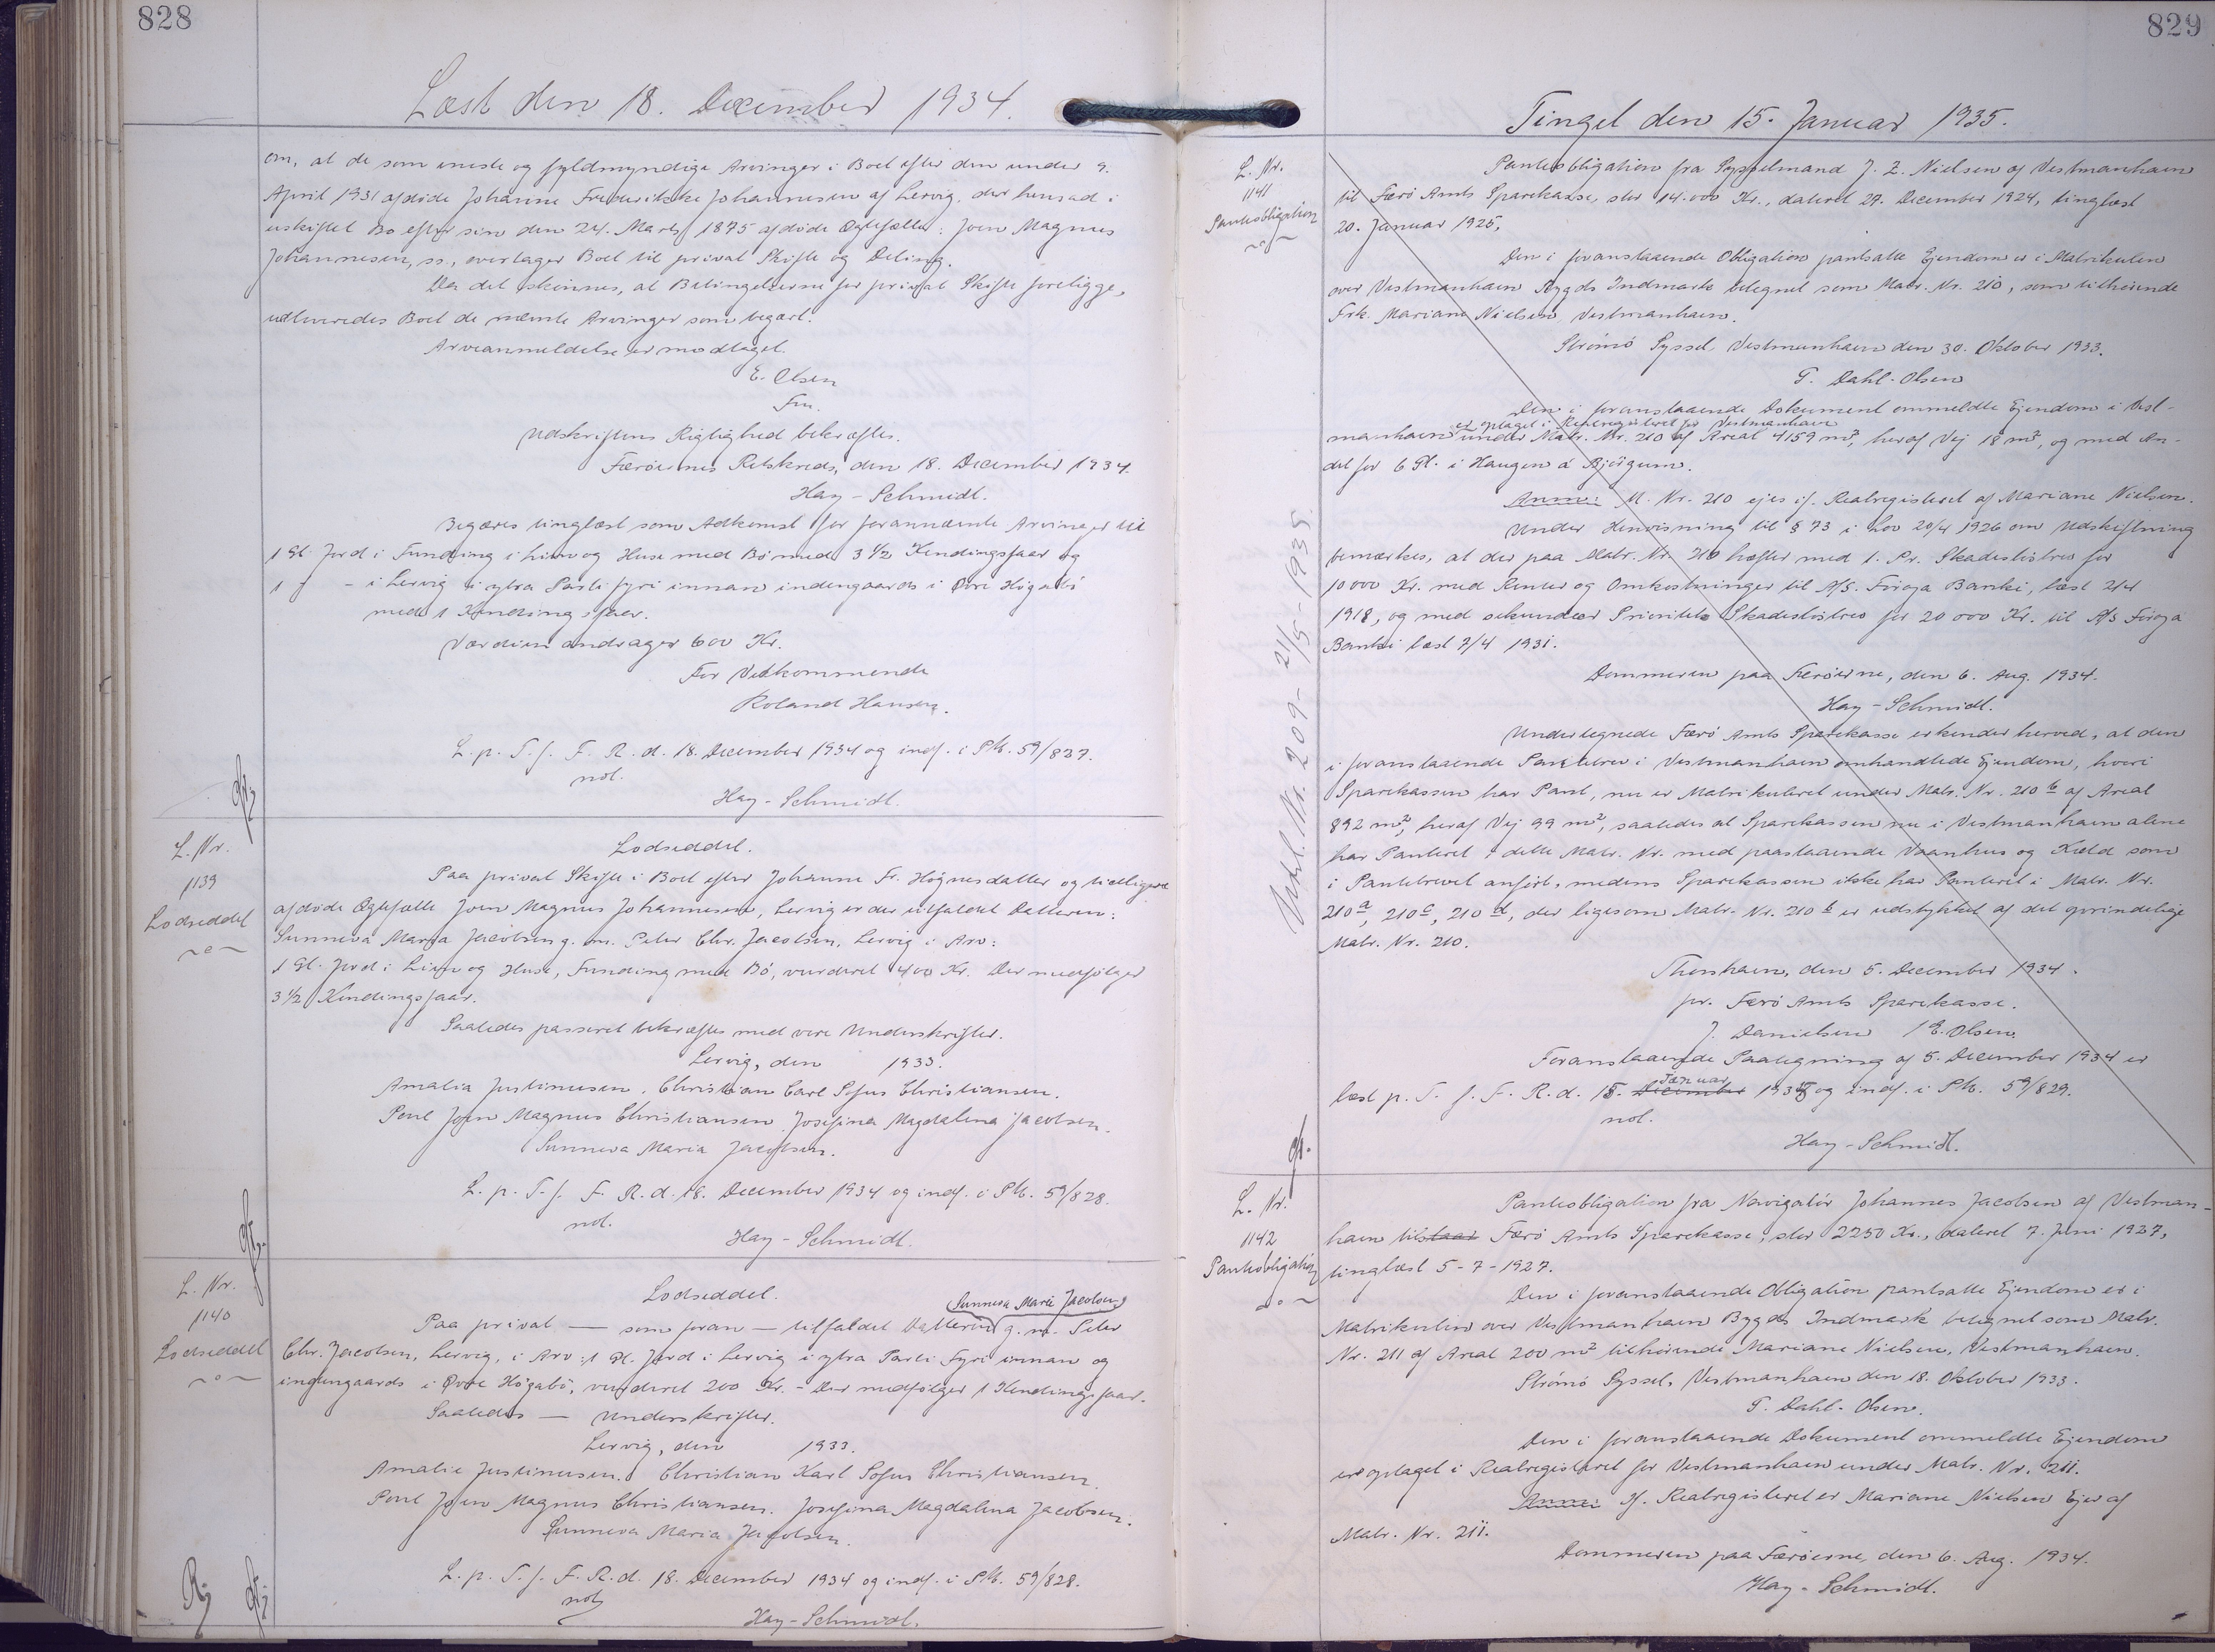 828
Læst den 18. December 1934.
om, at de som eneste og fyldmyndige Arvinger i Boet efter den under 9.
April 1931 afdøde Johanne Frederikke Johannesen af Lervig, der hensad i
uskiftet Bo efter sin den 24. Marts 1875 afdøde Ægtefælle: Joen Magnus
Johannesen, ss., overtager Boet til privat Skifte og Deling.
Da det skønnes, at Betingelserne for privat Skifte foreligge,
udleveredes Boet de nævnte Arvinger som begært.
Arveanmeldelse er modtaget.
E. Olsen
Fm.
Udskriftens Rigtighed bekræftes.
Færøernes Retskreds, den 18. December 1934.
Hay-Schmidt.
Begæres tinglæst som Adkomst for forannævnte Arvinger til
1 Gl. Jord i Funding i Liim og Huse med Bø med 3 1/2 Kendingsfaar og
1 " - i Lervig i ytra Parti fyri innan indengaards i Øvre Høgabø
med 1 Kendingsfaar.
Værdien andrager 600 Kr.
For Vedkommende
Roland Hansen.
L. p. T. f. F. R. d. 18. December 1934 og indf. i Pb. 59/827.
not.
Hay-Schmidt.
L. Nr.
1139
Lodseddel
Lodseddel.
Paa privat Skifte i Boet efter Johanne Fr. Høgnesdatter og tidligere
afdøde Ægtefælle Joen Magnus Johannesen, Lervig er der tilfaldet Datteren:
Sunneva Maria Jacobsen g. m. Peter Chr. Jacobsen, Lervig i Arv:
1 Gl. Jord i Liim og Huse, Funding med Bø, vurderet 400 Kr. Der medfølger
3 1/2 Kendingsfaar.
Saaledes passeret bekræftes med vore Underskrifter.
Lervig, den 1933.
Amalia Justinussen. Christian Carl Sofus Christiansen.
Poul Joen Magnus Christiansen. Josefina Magdalena Jacobsen.
Sunneva Maria Jacobsen.
L. p. T. f. F. R. d. 18. December 1934 og indf. i Pb. 59/828.
not.
Hay-Schmidt.
L. Nr.
1140
Lodseddel
Lodseddel.
Sunneva Marie Jacobsen
Paa privat — som foran — tilfaldet Datteren g. m. Peter
Chr. Jacobsen, Lervig, i Arv: 1 Gl. Jord i Lervig i ytra Parti Fyri innan og
ingengaards i Øvre Høgabø, vurderet 200 Kr. - Der medfølger 1 Kendingsfaar.
Saaledes — Underskrifter.
Lervig, den 1933.
Amalie Justinussen. Christian Karl Sofus Christiansen.
Poul Joen Magnus Christiansen. Josefina Magdalena Jacobsen.
Sunneva Maria Jacobsen.
L. p. T. f. F. R. d. 18. December 1934 og indf. i Pb. 59/828.
not
Hay-Schmidt.
829
Tinget den 15. Januar 1935.
L. Nr.
1141
Pantobligation
Pantobligation fra Sysselmand J. Z. Nielsen af Vestmanhavn
til Færø Amts Sparekasse, stor 14.000 Kr., dateret 27. December 1924, tinglæst
20. Januar 1925.
Den i foranstaaende Obligation pantsatte Ejendom er i Matrikulen
over Vestmanhavn Bygds Indmark betegnet som Matr. Nr. 210, som tilhørende
Frk. Mariane Nielsen, Vestmanhavn.
Strømø Syssel, Vestmanhavn den 30. Oktober 1933.
T. Dahl-Olsen
Den i foranstaaende Dokument ommeldte Ejendom i Vest-
er optaget i Realregisteret for Vestmanhavn
manhavn under Matr. Nr. 210 af Areal 4159 m², heraf Vej 18 m², og med An-
del for 6 Gl. i Haugen á Bjørgum.
Anm: M. Nr. 210 ejes if. Realregisteret af Mariane Nielsen.
Under Henvisning til § 73 i Lov 20/4 1926 om Udskiftning
bemærkes, at der paa Matr. Nr. 210 hæfter med 1. Pr. Skadesløsbrev for
10000 Kr. med Renter og Omkostninger til A/S. Føroya Banki, læst 2/4
1918, og med sekundær Prioritets Skadesløsbrev for 20 000 Kr. til A/S Føroya
Banki læst 7/4 1931.
Dommeren paa Færøerne, den 6. Aug. 1934.
Hay-Schmidt.
Undertegnede Færø Amts Sparekasse erkender herved, at den
i foranstaaende Pantebrev i Vestmanhavn omhandlede Ejendom, hvori
Sparekassen har Pant, nu er Matrikuleret under Matr. Nr. 210 b af Areal
892 m², heraf Vej 99 m², saaledes at Sparekassen nu i Vestmanhavn alene
har Panteret i dette Matr. Nr. med paastaaende Vaanhus og Kæld som
i Pantebrevet anført, medens Sparekassen ikke har Panteret i Matr. Nr.
210 a, 210 c, 210 d, der ligesom Matr. Nr. 210 b er udstykket af det oprindelige
Matr. Nr. 210.
Thorshavn, den 5. December 1934.
pr. Færø Amts Sparekasse.
J. Danielsen / E. Olsen
Foranstaaende Paategning af 5. December 1934 er
Januar
læst p. T. f. F. R. d. 15. December 1935 og indf. i Pb. 59/829.
not.
Hay-Schmidt.
Nr. 209 - 21/5-1935
L. Nr.
1142
Pantobligation
Pantobligation fra Navigatør Johannes Jacobsen af Vestman-
havn tilstaar Færø Amts Sparekasse, stor 2250 Kr., dateret 7. Juni 1927,
tinglæst 5-7-1927.
Den i foranstaaende Obligation pantsatte Ejendom er i
Matrikulen over Vestmanhavn Bygds Indmark betegnet som Matr.
Nr. 211 af Areal 200 m² tilhørende Mariane Nielsen, Vestmanhavn.
Strømø Syssel, Vestmanhavn den 18. Oktober 1933.
T. Dahl-Olsen.
Den i foranstaaende Dokument ommeldte Ejendom
er optaget i Realregisteret for Vestmanhavn under Matr. Nr. 211.
Anm: If. Realregisteret er Mariane Nielsen Ejer af
Matr. Nr. 211.
Dommeren paa Færøerne, den 6. Aug. 1934.
Hay-Schmidt.